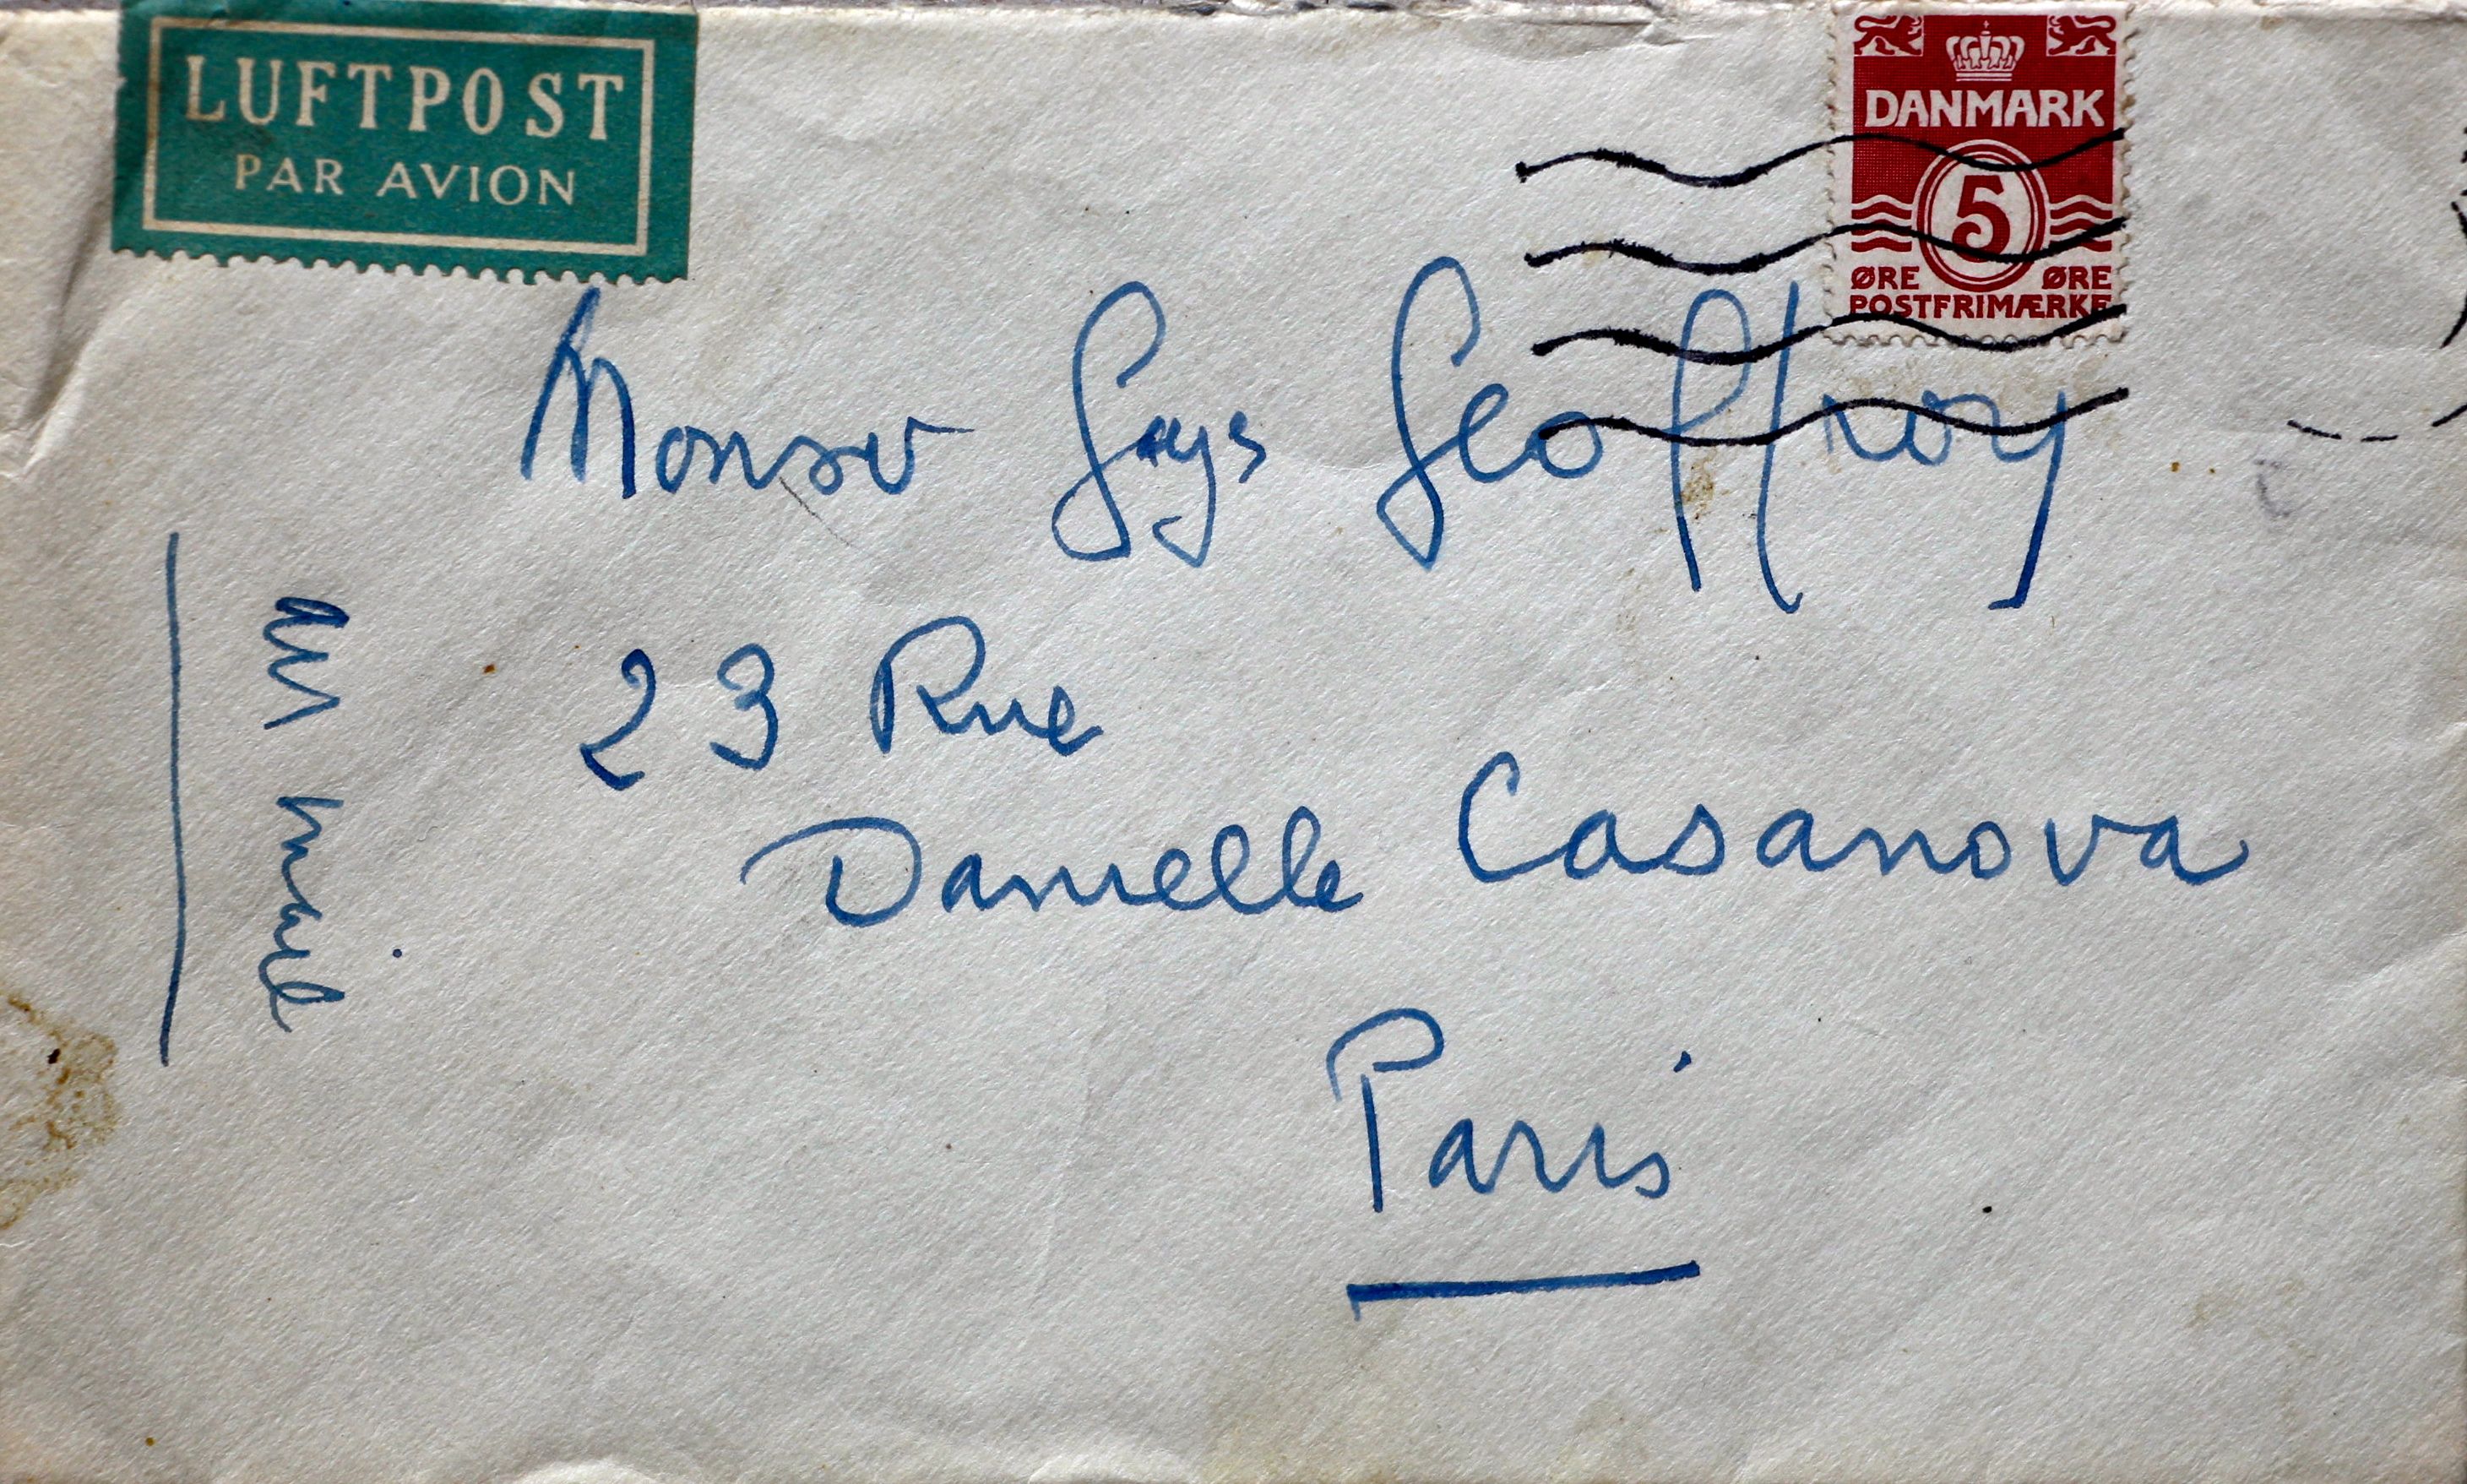 LUFTPOST
PAR AVION
DANMARK
5
ØRE ØRE
POSTFRIMÆRKE
Geoffroy
23 Rue
Danielle Casanova
Paris
air mail